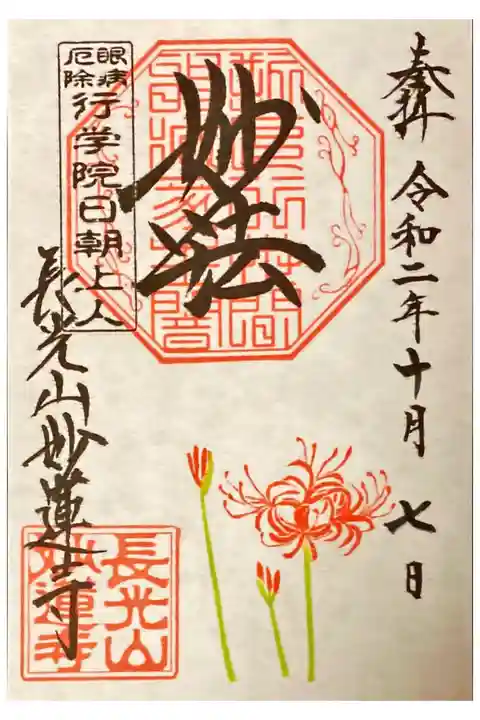 奉拝 令和二年十月 七日
妙法
眼病
厄除
行学院日朝上人
長光山妙蓮寺
長光山
妙蓮寺